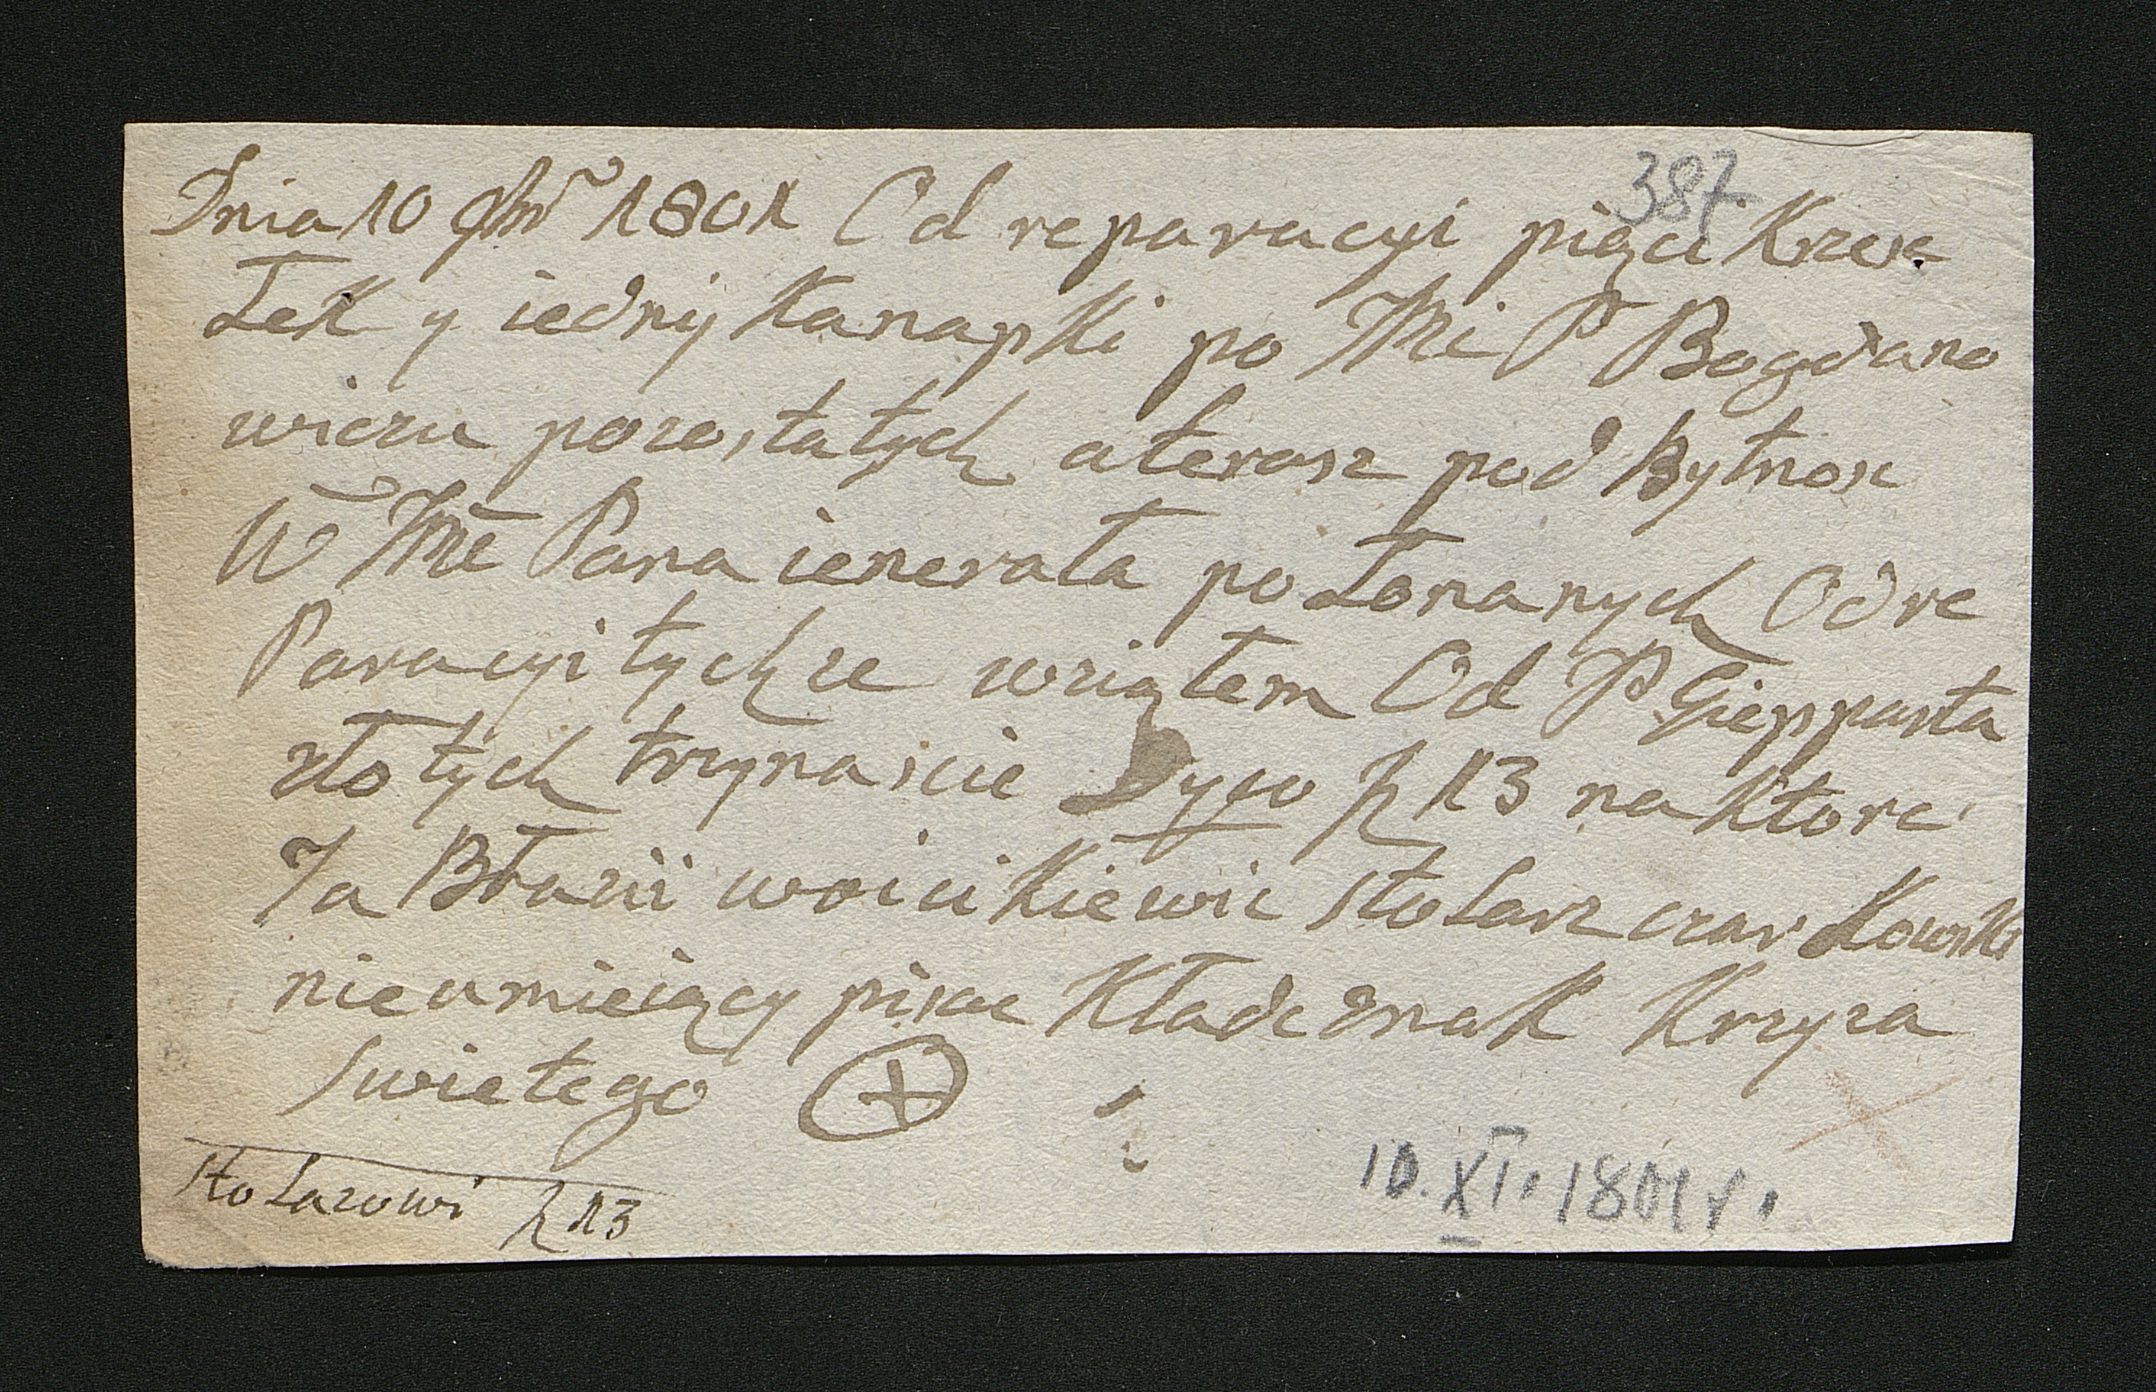 387
Dnia 10 9br 1801 Od reparacyi pięci Krzese
łek y iedny Kanapki po JMci P Bogdano
wiczu pozostałych a terasz pod Bytnosc
W JMc Pana ienerała połomanych Od re
Paracyi tychze wziąłem Od P Giepparta
złotych trzynascie Dyco zł 13 na Ktore
Ja Błazii woicikiewic stolarz czarkowski
nieumieiący pisac Kładę znak Krzyza
swietego +
stolarowi zł 13
10. XI. 1801 r.